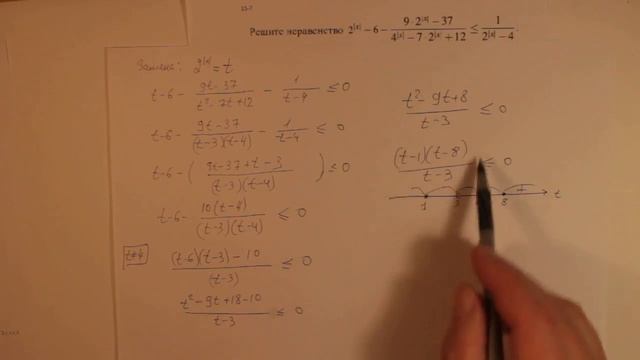 Решите неравенство 2^{|x|} − 6 − \frac{9·2^{|x|} − 37}{4^{|x|} − 7·2^{|x|} + 12} ≤ \frac{1}{2^{|x|} − 4}.
Замена: 2^{|x|} = t
t−6− \frac{9t−37}{t²−7t+12} − \frac{1}{t−4} ≤ 0
t−6− \frac{9t−37}{(t−3)(t−4)} − \frac{1}{t−4} ≤ 0
t−6− ( \frac{9t−37+t−3}{(t−3)(t−4)} ) ≤ 0
t−6− \frac{10(t−4)}{(t−3)(t−4)} ≤ 0
t≠4
\frac{(t−6)(t−3)−10}{(t−3)} ≤ 0
\frac{t²−9t+18−10}{t−3} ≤ 0
\frac{t²−9t+8}{t−3} ≤ 0
\frac{(t−1)(t−8)}{t−3} ≤ 0
+ t
1 3 8